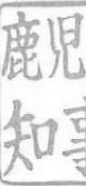 鹿児
知事